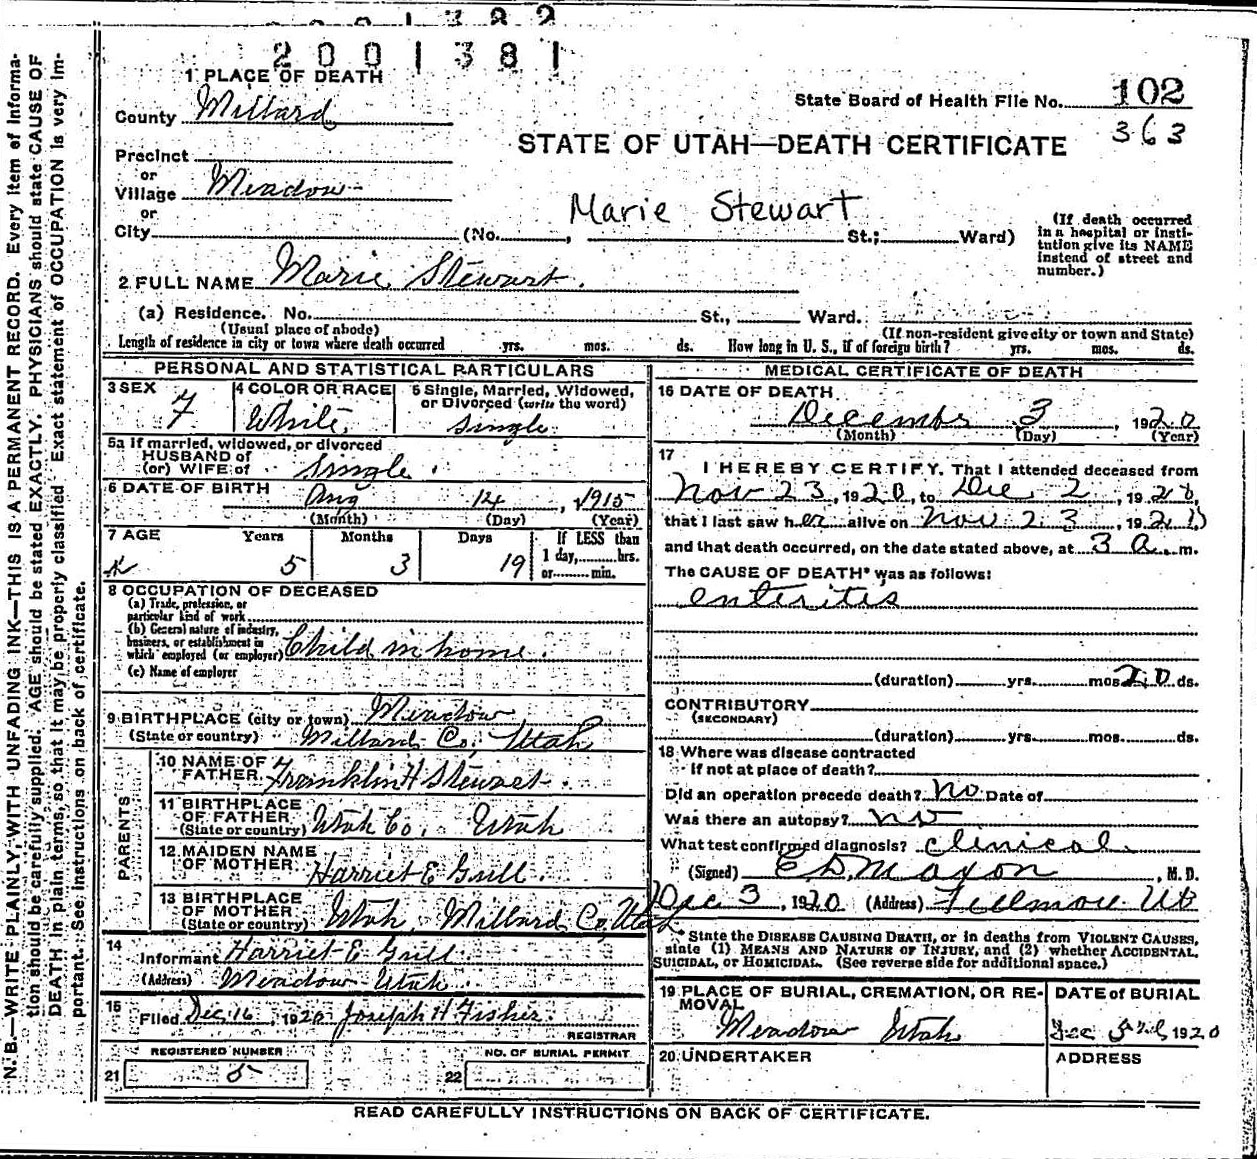 2001382
2001381
1 PLACE OF DEATH
County Millard
State Board of Health File No. 102
363
STATE OF UTAH—DEATH CERTIFICATE
Precinct
or
Village Meadow
or
City (No. , Marie Stewart St.; Ward)
(If death occurred in a hospital or institution give its NAME instead of street and number.)
2 FULL NAME Marie Stewart.
(a) Residence. No. St., Ward.
(Usual place of abode) (If non-resident give city or town and State)
Length of residence in city or town where death occurred yrs. mos. ds. How long in U. S., if of foreign birth? yrs. mos. ds.
PERSONAL AND STATISTICAL PARTICULARS
3 SEX F
4 COLOR OR RACE White
5 Single, Married, Widowed, or Divorced (write the word) Single
5a If married, widowed, or divorced
HUSBAND of
(or) WIFE of Single.
6 DATE OF BIRTH Aug 14, 1915
(Month) (Day) (Year)
7 AGE Years Months Days If LESS than
5 3 19 1 day, hrs.
or min.
8 OCCUPATION OF DECEASED
(a) Trade, profession, or
particular kind of work
(b) General nature of industry,
business, or establishment in
which employed (or employer) Child in home.
(c) Name of employer
9 BIRTHPLACE (city or town) Meadow
(State or country) Millard Co, Utah
PARENTS
10 NAME OF FATHER Franklin H Stewart.
11 BIRTHPLACE OF FATHER (State or country) Utah Co. Utah
12 MAIDEN NAME OF MOTHER Harriet E Gull.
13 BIRTHPLACE OF MOTHER (State or country) Utah, Millard Co, Utah
14 Informant Harriet E Gull
(Address) Meadow Utah
15 Filed Dec 16, 1920 Joseph H Fisher.
REGISTRAR
REGISTERED NUMBER NO. OF BURIAL PERMIT
21 5 22
MEDICAL CERTIFICATE OF DEATH
16 DATE OF DEATH
December 3, 1920
(Month) (Day) (Year)
17 I HEREBY CERTIFY, That I attended deceased from
Nov 23, 1920, to Dec 2, 1920,
that I last saw her alive on Nov 23, 1920
and that death occurred, on the date stated above, at 3 a. m.
The CAUSE OF DEATH* was as follows:
enteritis
(duration) yrs. mos. 20 ds.
CONTRIBUTORY
(SECONDARY)
(duration) yrs. mos. ds.
18 Where was disease contracted
if not at place of death?
Did an operation precede death? no Date of
Was there an autopsy? no
What test confirmed diagnosis? clinical
(Signed) E D Maxon, M. D.
Dec 3, 1920 (Address) Fillmore Ut
* State the DISEASE CAUSING DEATH, or in deaths from VIOLENT CAUSES,
state (1) MEANS AND NATURE OF INJURY, and (2) whether ACCIDENTAL,
SUICIDAL, or HOMICIDAL. (See reverse side for additional space.)
19 PLACE OF BURIAL, CREMATION, OR REMOVAL DATE of BURIAL
Meadow Utah Dec 5th 1920
20 UNDERTAKER ADDRESS
READ CAREFULLY INSTRUCTIONS ON BACK OF CERTIFICATE.
N. B.—WRITE PLAINLY, WITH UNFADING INK—THIS IS A PERMANENT RECORD. Every item of informa-
tion should be carefully supplied. AGE should be stated EXACTLY. PHYSICIANS should state CAUSE OF
DEATH in plain terms, so that it may be properly classified. Exact statement of OCCUPATION is very im-
portant. See instructions on back of certificate.